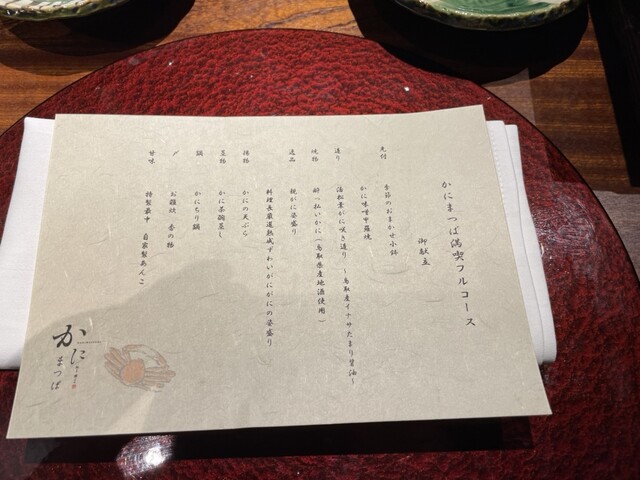 かにまつば満喫フルコース
御献立
先付 季節のおまかせ小鉢
かに味噌甲羅焼
造り 活松葉がに咲き造り ～鳥取産イナサたまり醤油～
焼物 酔っ払いかに(鳥取県産地酒使用)
逸品 親がに姿盛り
料理長厳選熟成ずわいがにがにの姿盛り
揚物 かにの天ぷら
蒸物 かに茶碗蒸し
鍋 かにちり鍋
〆 お雑炊 香の物
甘味 特製最中 自家製あんこ
かに
まつば